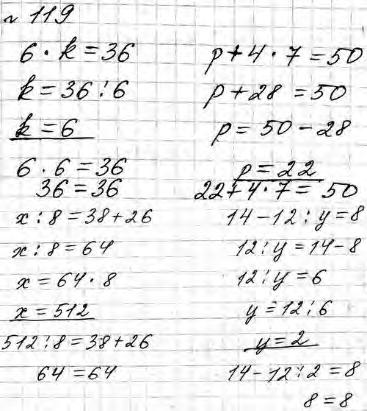 № 119
6 · k = 36
k = 36 : 6
k = 6
6 · 6 = 36
36 = 36
x : 8 = 38 + 26
x : 8 = 64
x = 64 · 8
x = 512
512 : 8 = 38 + 26
64 = 64
p + 4 · 7 = 50
p + 28 = 50
p = 50 - 28
p = 22
22 + 4 · 7 = 50
14 - 12 : y = 8
12 : y = 14 - 8
12 : y = 6
y = 12 : 6
y = 2
14 - 12 : 2 = 8
8 = 8